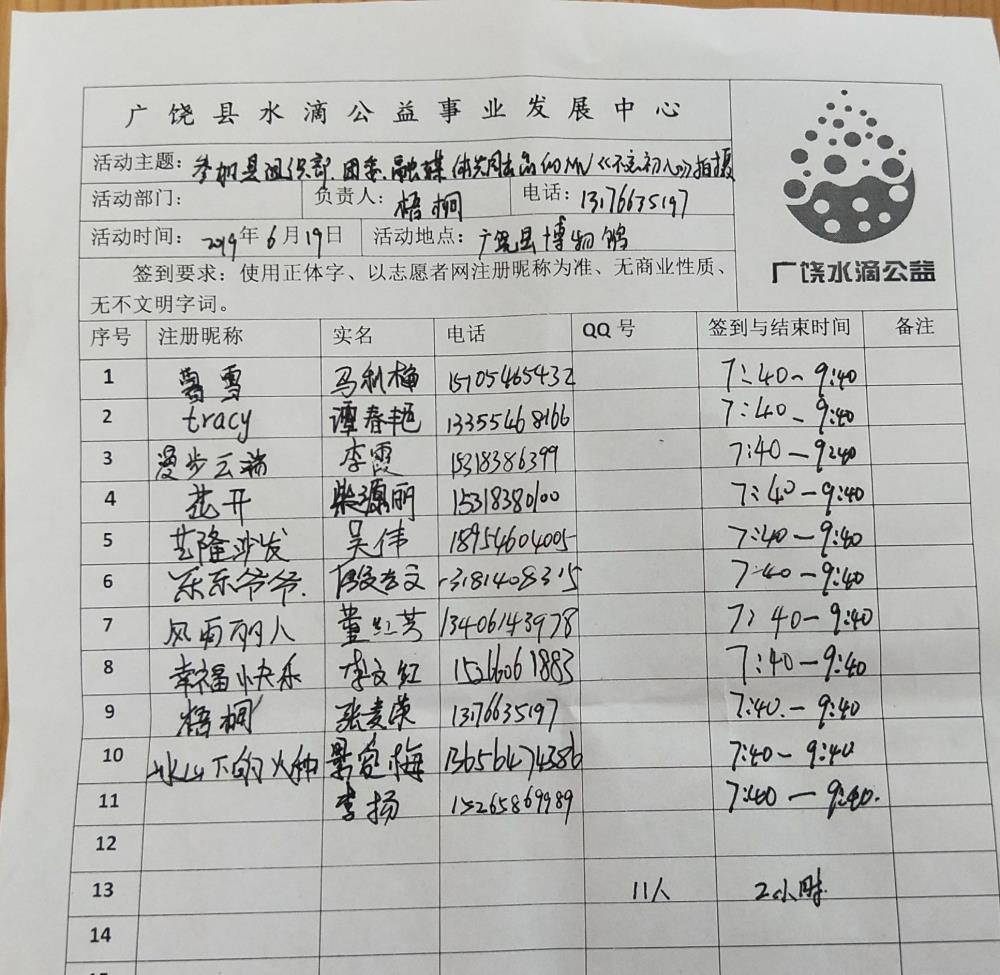 广饶县水滴公益事业发展中心
活动主题：参加县组织部、团委、融媒体共同出品的MV《不忘初心》拍摄
活动部门： 负责人：梧桐 电话：13176635197
活动时间：2019年6月19日 活动地点：广饶县博物馆
广饶水滴公益
签到要求：使用正体字、以志愿者网注册昵称为准、无商业性质、
无不文明字词。
序号 注册昵称 实名 电话 QQ号 签到与结束时间 备注
1 雪 马利梅 15705465432 7:40-9:40
2 tracy 谭春艳 13355468166 7:40-9:40
3 漫步云端 李霞 15318386399 7:40-9:40
4 花开 柴源丽 15318380100 7:40-9:40
5 艺隆沙发 吴伟 18954604005 7:40-9:40
6 乐乐爷爷. 文 13181408315 7:40-9:40
7 风雨丽人 董红芳 13406143978 7:40-9:40
8 幸福小快乐 李文红 15266061883 7:40-9:40
9 梧桐 张麦荣 13176635197 7:40-9:40
10 冰山下的火种 梅 13656474386 7:40-9:40
11 李扬 15265869989 7:40-9:40.
12
13 11人 2小时
14